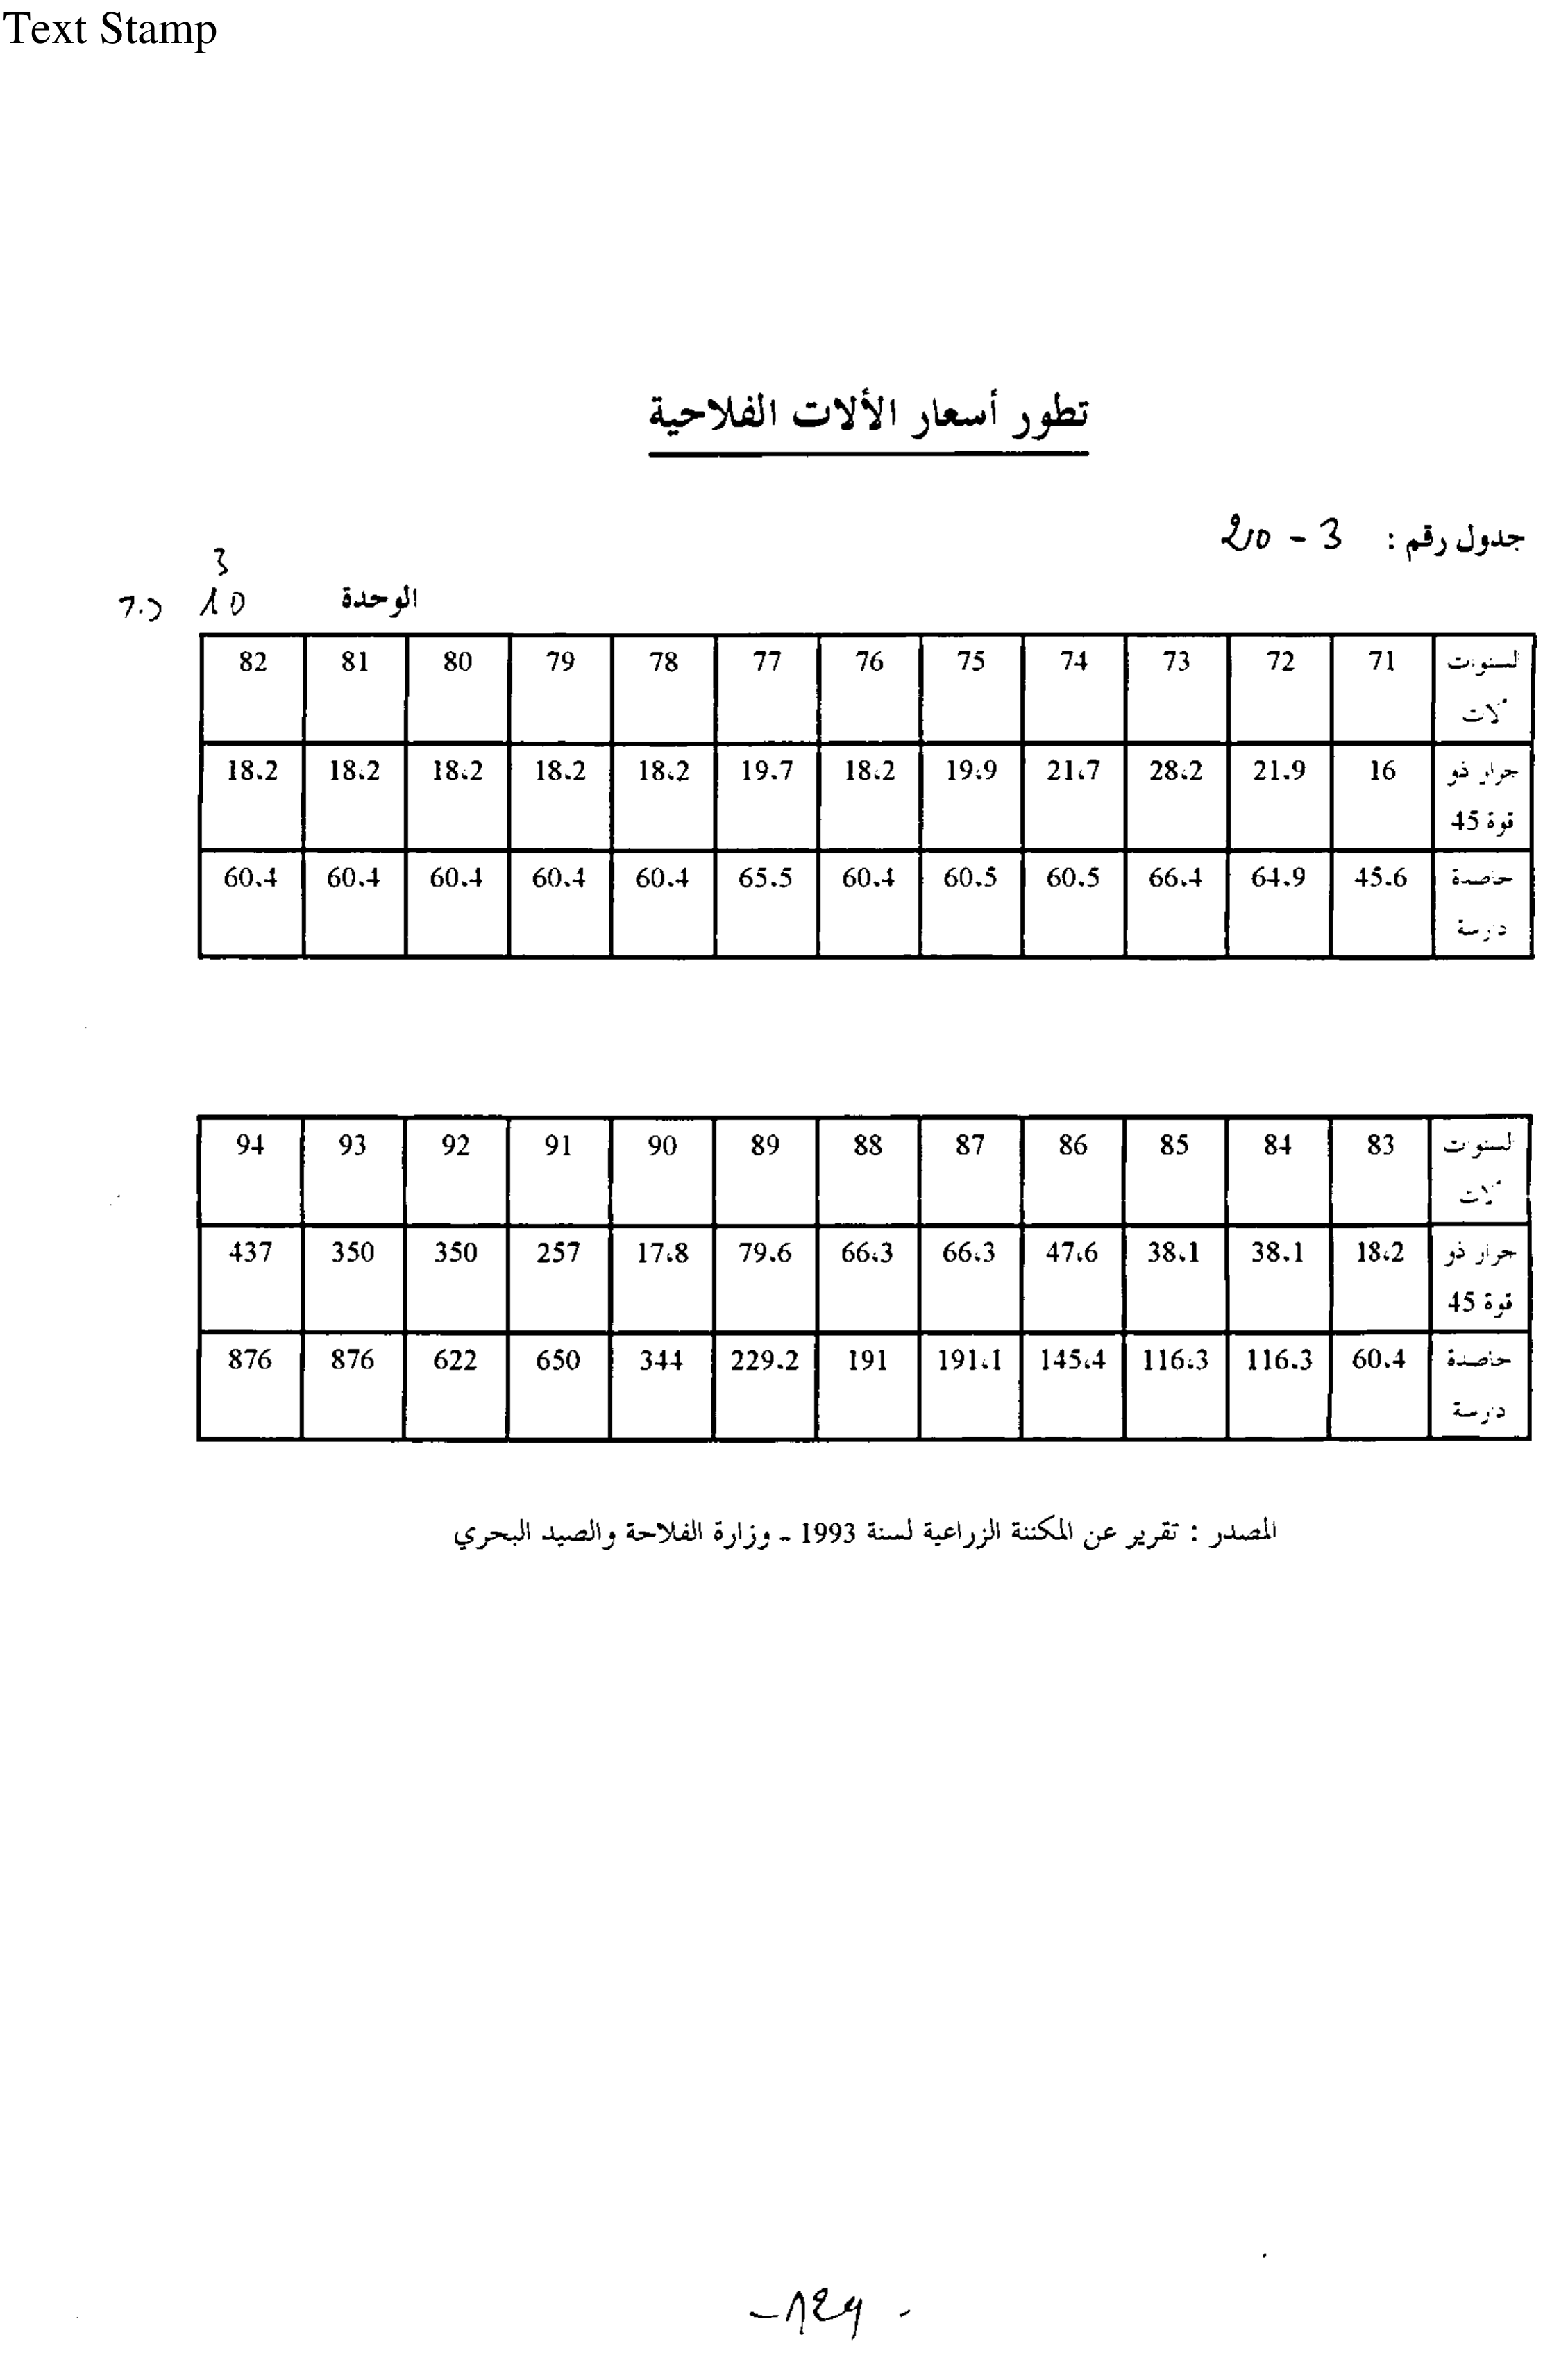 Text Stamp
تطور أسعار الألات الفلاحية
جدول رقم : 3 - 20
الوحدة 10 3 د.ج
السنوات 71 72 73 74 75 76 77 78 79 80 81 82
الآلات
جرار ذو 16 21.9 28.2 21.7 19.9 18.2 19.7 18.2 18.2 18.2 18.2 18.2
قوة 45
حاصدة 45.6 64.9 66.4 60.5 60.5 60.4 65.5 60.4 60.4 60.4 60.4 60.4
دارسة
السنوات 83 84 85 86 87 88 89 90 91 92 93 94
الآلات
جرار ذو 18.2 38.1 38.1 47.6 66.3 66.3 79.6 17.8 257 350 350 437
قوة 45
حاصدة 60.4 116.3 116.3 145.4 191.1 191 229.2 344 650 622 876 876
دارسة
المصدر : تقرير عن المكننة الزراعية لسنة 1993 ـ وزارة الفلاحة والصيد البحري
- 129 -